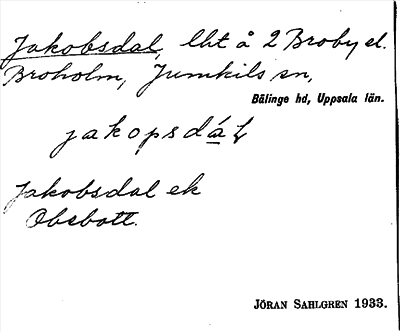 Jakobsdal, lht å 2 Broby el.
Broholm, Jumkils sn,
Bälinge hd, Uppsala län.
jakopsdáɫ
Jakobsdal ek
Obsbatt.
JÖRAN SAHLGREN 1933.